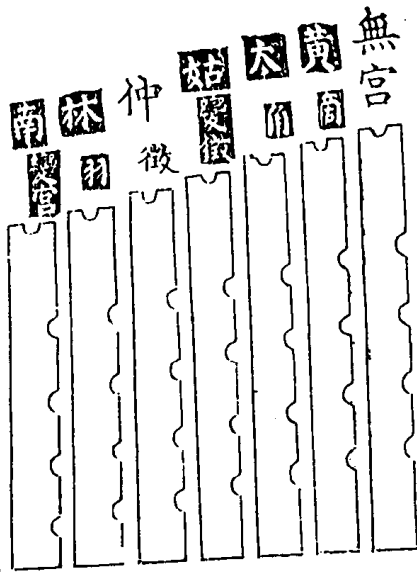 無宮
黄商
太角
姑變徵
仲徵
林羽
南變宮